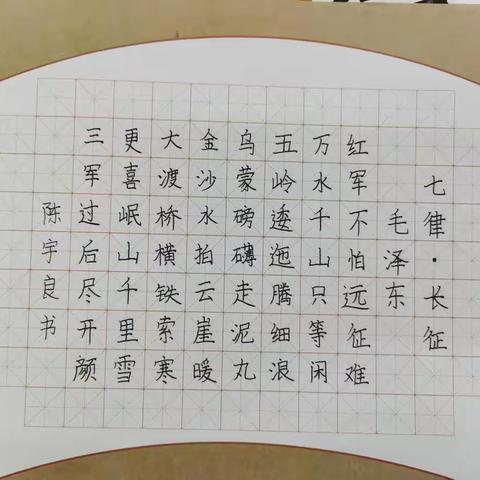 七律·长征
毛泽东
红军不怕远征难
万水千山只等闲
五岭逶迤腾细浪
乌蒙磅礴走泥丸
金沙水拍云崖暖
大渡桥横铁索寒
更喜岷山千里雪
三军过后尽开颜
陈宇良书